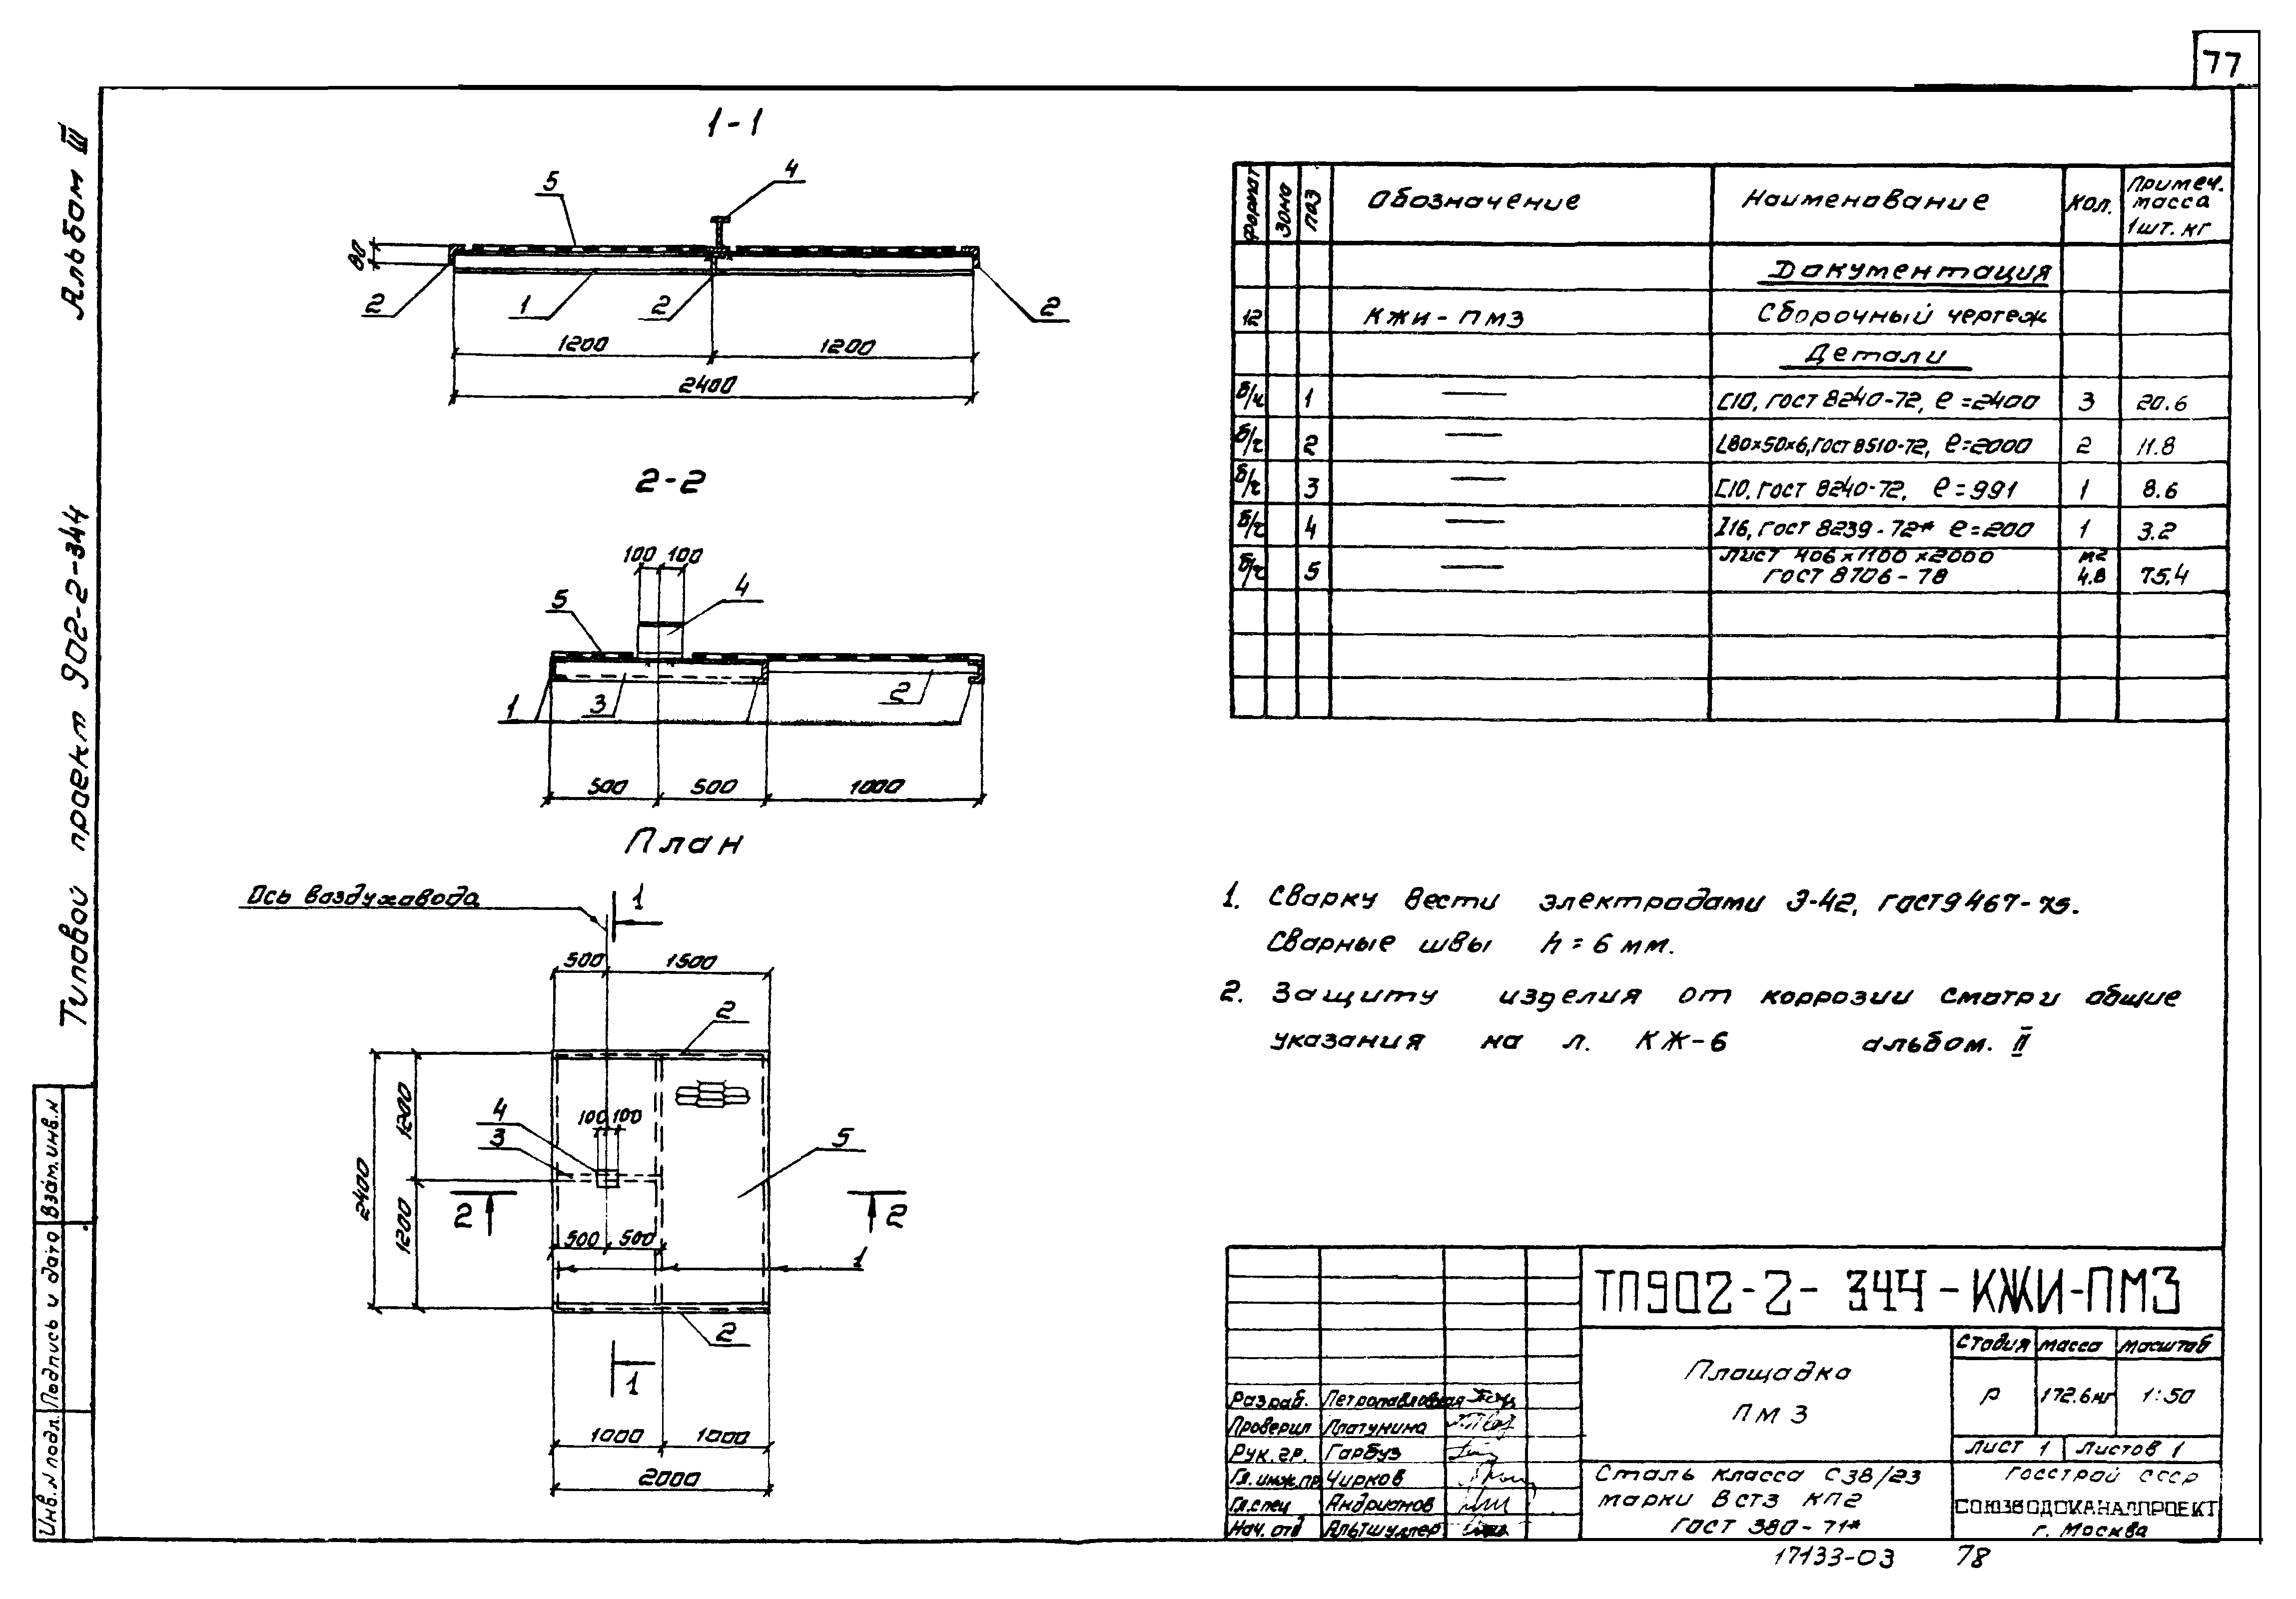 77
Альбом III
Типовой проект 902-2-344
Взам. инв. N
Подпись и дата
Инв. N подл.
1-1
5
4
80
2
1
2
2
1200
1200
2400
2-2
100
100
5
4
1
3
2
500
500
1000
План
Ось воздуховода
1
500
1500
2
4
3
100
100
5
2400
1200
1200
2
2
500
500
1
2
1
1000
1000
2000
Формат Зона Поз Обозначение Наименование Кол. Примеч. масса 1шт. кг
Документация
12 КЖИ-ПМ3 Сборочный чертеж
Детали
б/ч 1 — [10, ГОСТ 8240-72, e=2400 3 20.6
б/ч 2 — L80×50×6, ГОСТ 8510-72, e=2000 2 11.8
б/ч 3 — [10, ГОСТ 8240-72, e=991 1 8.6
б/ч 4 — I16, ГОСТ 8239-72* e=200 1 3.2
б/ч 5 — Лист 406×1100×2000 ГОСТ 8706-78 м2 4.8 75.4
1. Сварку вести электродами Э-42, ГОСТ 9467-75.
Сварные швы h=6 мм.
2. Защиту изделия от коррозии смотри общие
указания на л. КЖ-6 альбом. II
ТП902-2-344-КЖИ-ПМ3
Площадка
ПМ 3
Стадия масса масштаб
Р 172.6 кг 1:50
Лист 1 Листов 1
Разраб. Петропавловская
Проверил Платунина
Рук. гр. Гарбуз
Гл. инж. пр. Чирков
Гл. спец Андрианов
Нач. отд Альтшуллер
Сталь класса С38/23
марки Вст3 кп2
ГОСТ 380-71*
Госстрой СССР
СОЮЗВОДОКАНАЛПРОЕКТ
г. Москва
17133-03 78